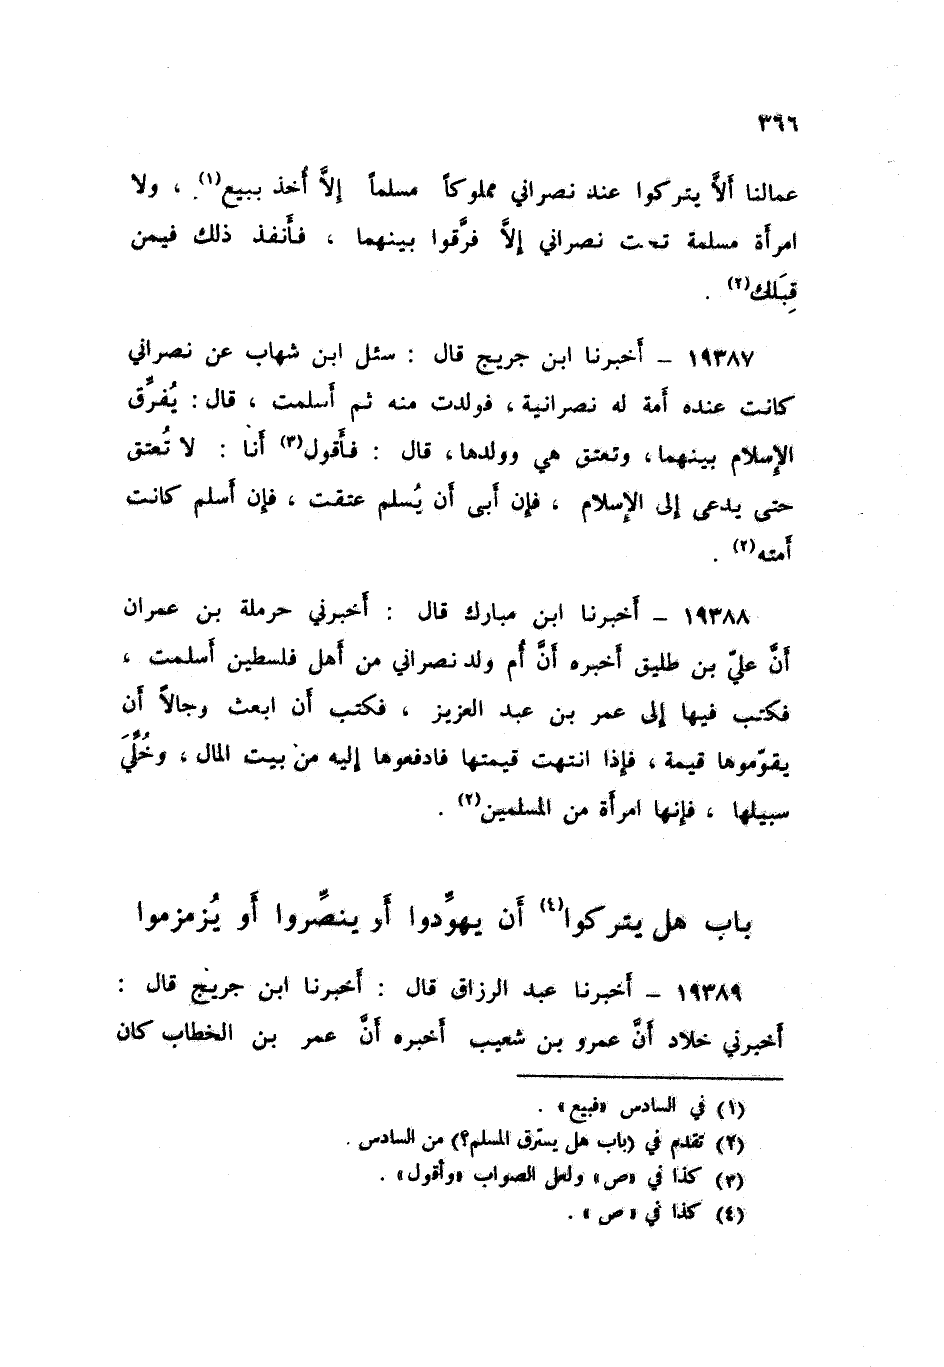 ٣٦٦
عمالنا أَلاَّ يتركوا عند نصراني مملوكاً مسلماً إلاَّ أُخذ ببيع(١) ، ولا
امرأَة مسلمة تحت نصراني إلاَّ فرَّقوا بينهما ، فأَنفذ ذلك فيمن
قِبَلك(٢) .
١٩٣٨٧ – أَخبرنا ابن جريج قال : سئل ابن شهاب عن نصراني
كانت عنده أَمة له نصرانية ، فولدت منه ثم أَسلمت ، قال : يُفرِّق
الإِسلام بينهما ، وتعتق هي وولدها ، قال : فأَقول(٣) أَنا : لا تُعتق
حتى يدعى إلى الإِسلام ، فإن أَبى أَن يُسلم عتقت ، فإن أَسلم كانت
أَمته(٢) .
١٩٣٨٨ – أَخبرنا ابن مبارك قال : أَخبرني حرملة بن عمران
أَنَّ عليّ بن طليق أَخبره أَنَّ أُم ولد نصراني من أَهل فلسطين أَسلمت ،
فكتب فيها إلى عمر بن عبد العزيز ، فكتب أَن ابعث رجالاً أَن
يقوّموها قيمة ، فإذا انتهت قيمتها فادفعوها إليه من بيت المال ، وخُلِّيَ
سبيلها ، فإنها امرأَة من المسلمين(٢) .
باب هل يتركوا(٤) أَن يهوِّدوا أَو ينصِّروا أَو يُزمزموا
١٩٣٨٩ – أَخبرنا عبد الرزاق قال : أَخبرنا ابن جريج قال :
أَخبرني خلاد أَنَّ عمرو بن شعيب أَخبره أَنَّ عمر بن الخطاب كان
(١) في السادس «فبيع» .
(٢) تقدم في (باب هل يسترق المسلم؟) من السادس .
(٣) كذا في «ص» ولعل الصواب «وأقول» .
(٤) كذا في « ص » .